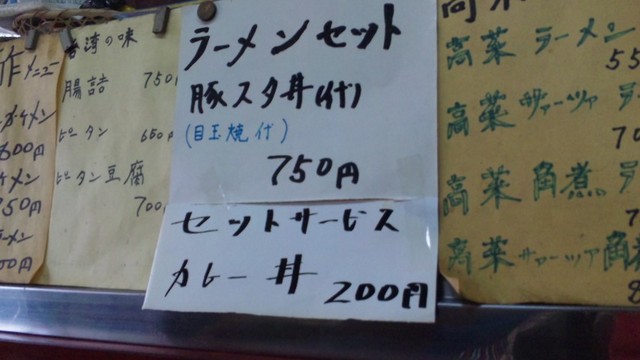 作メニュー
600円
台湾の味
腸詰 750
ピータン 650円
ピータン豆腐
700
ラーメンセット
豚スタ丼(付)
(目玉焼付)
750円
セットサービス
カレー丼 200円
高菜 ラーメン
55
高菜 ザーツァ ラーメ
70
高菜 角煮 ラ
7
高菜 ザーツァ 角煮